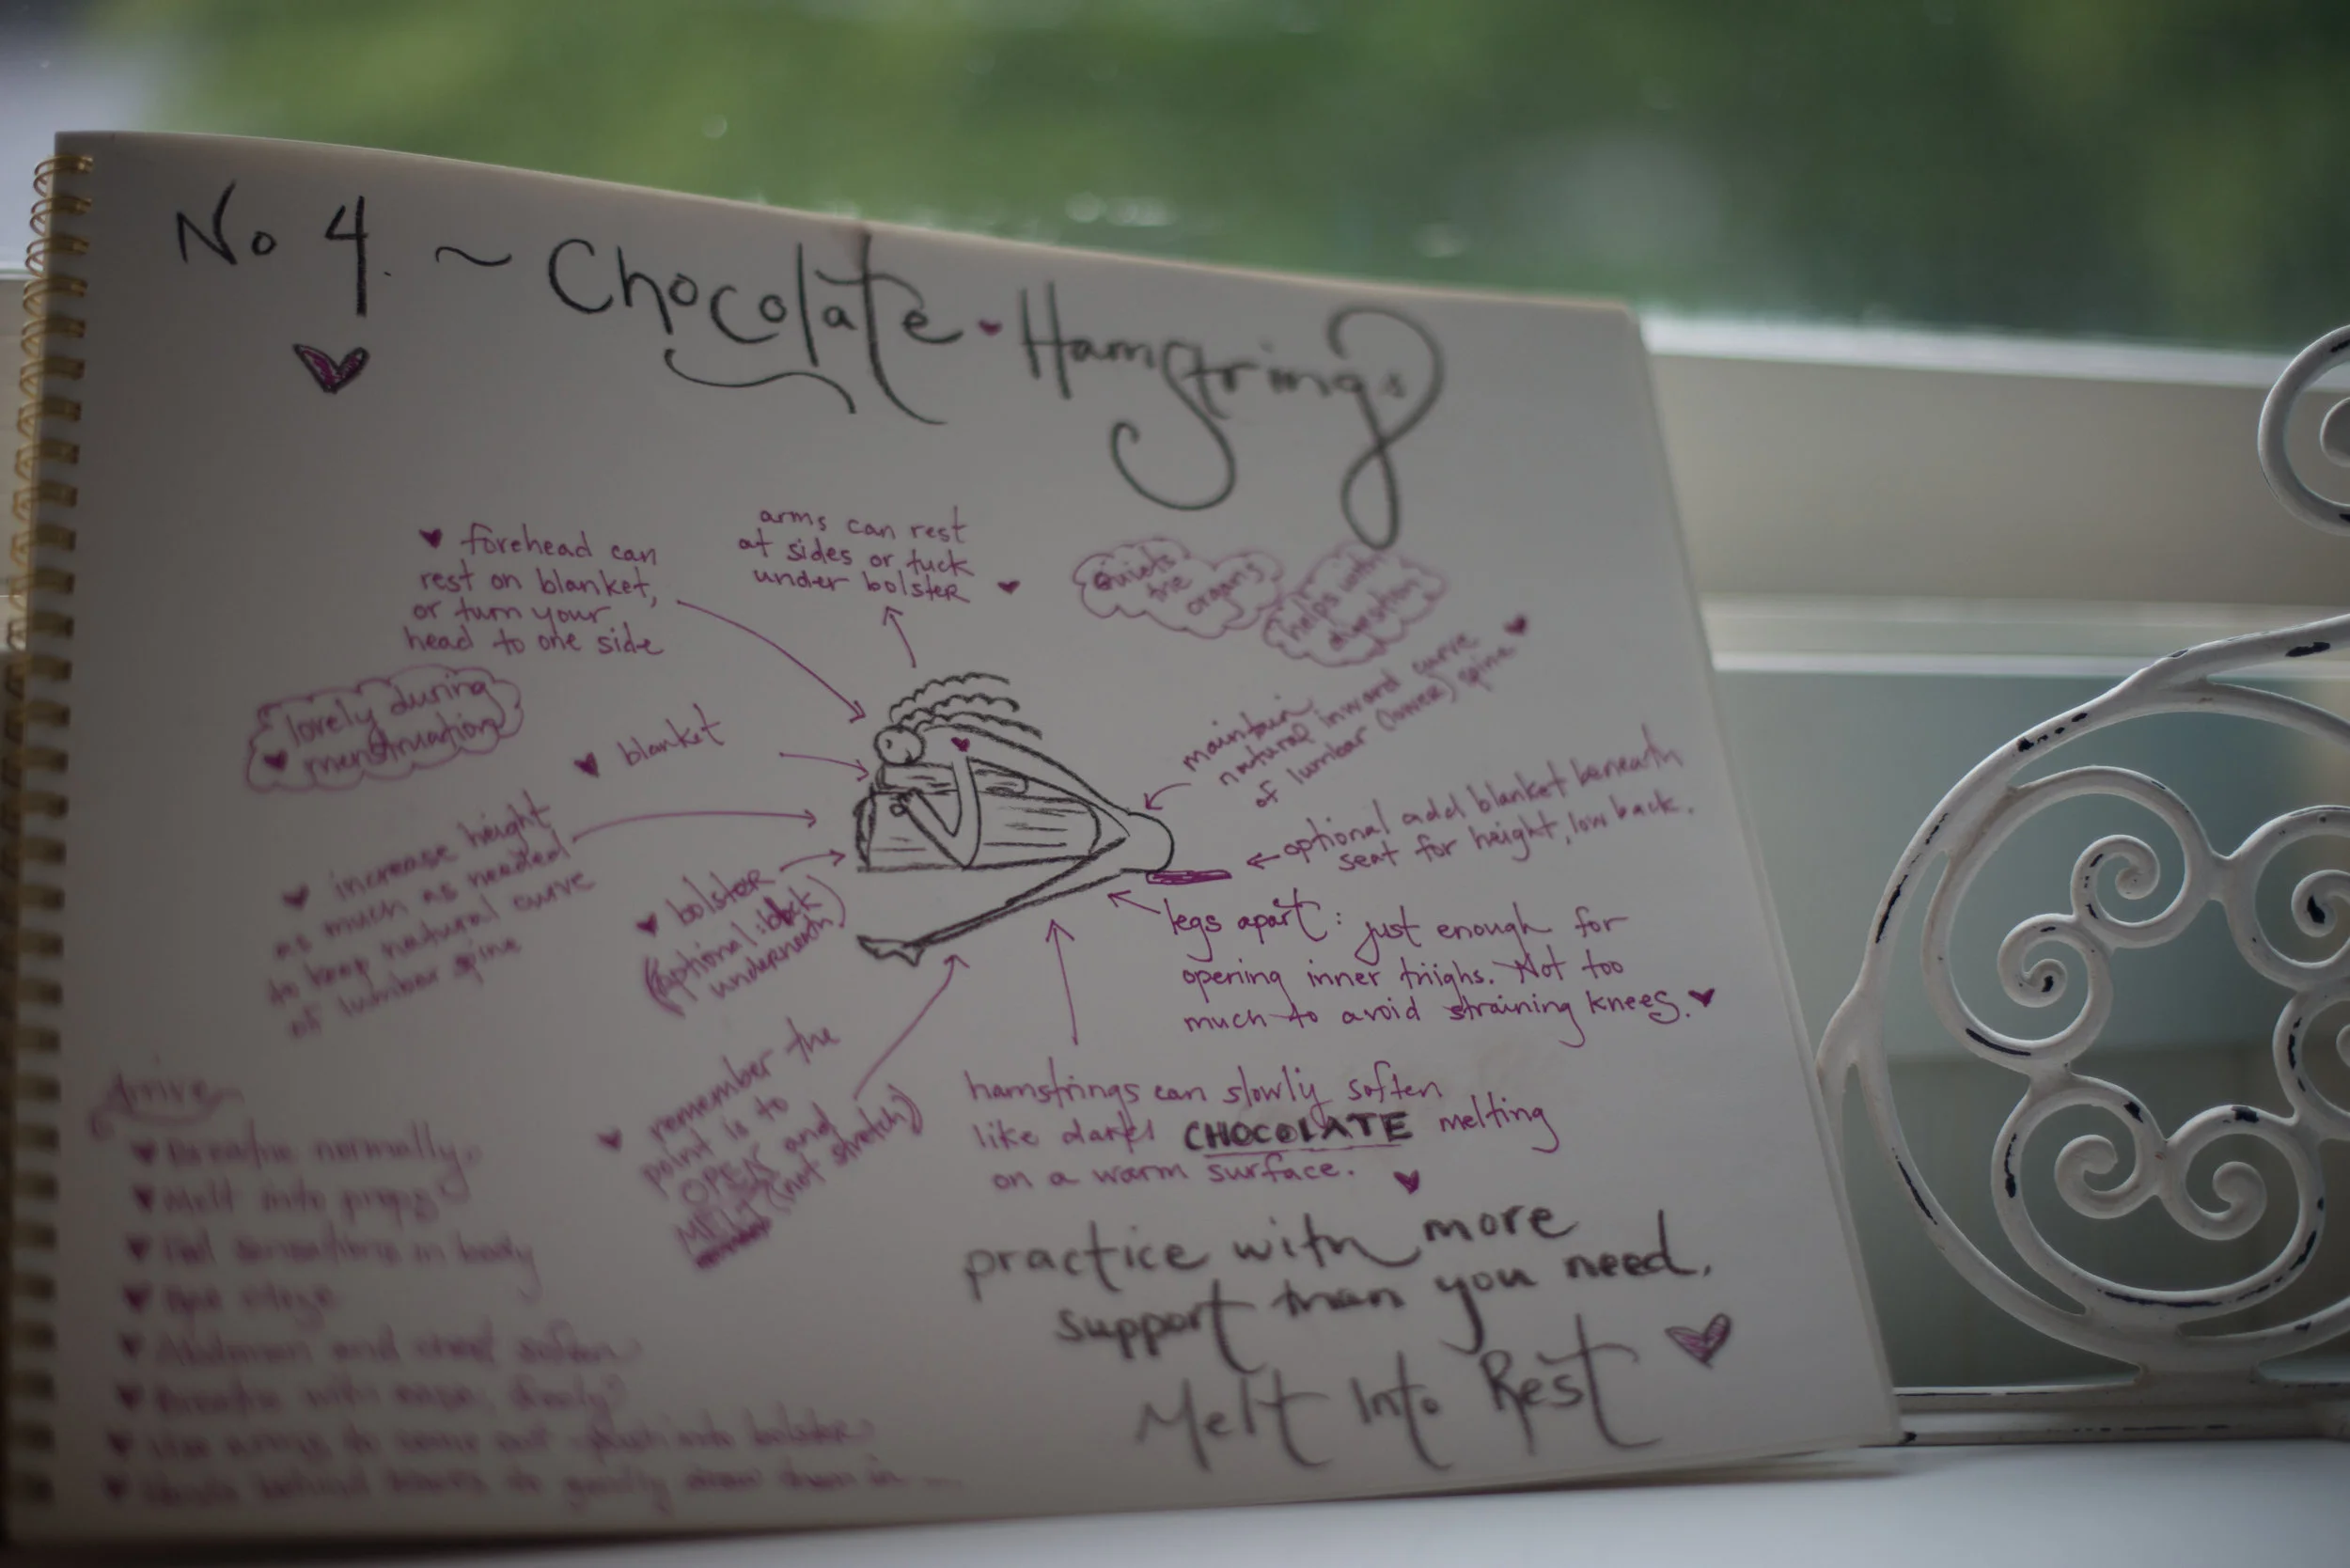 No 4. ~ Chocolate Hamstrings
forehead can
rest on blanket,
or turn your
head to one side
arms can rest
at sides or tuck
under bolster
Quiets
the
organs
helps with
digestion
lovely during
menstruation
blanket
maintain
natural inward curve
of lumbar (lower) spine
increase height
as much as needed
to keep natural curve
of lumbar spine
bolster
(optional: block
underneath)
optional add blanket beneath
seat for height, low back.
legs apart: just enough for
opening inner thighs. Not too
much to avoid straining knees.
remember the
point is to
OPEN and
MELT (not stretch)
hamstrings can slowly soften
like dark CHOCOLATE melting
on a warm surface.
Arrive
Breathe normally
Melt into props
Feel sensations in body
Abdomen and chest soften
Breathe with ease, freely
Use arms to come out - push into bolster
Hands behind knees to gently draw them in ...
practice with more
support than you need.
Melt Into Rest